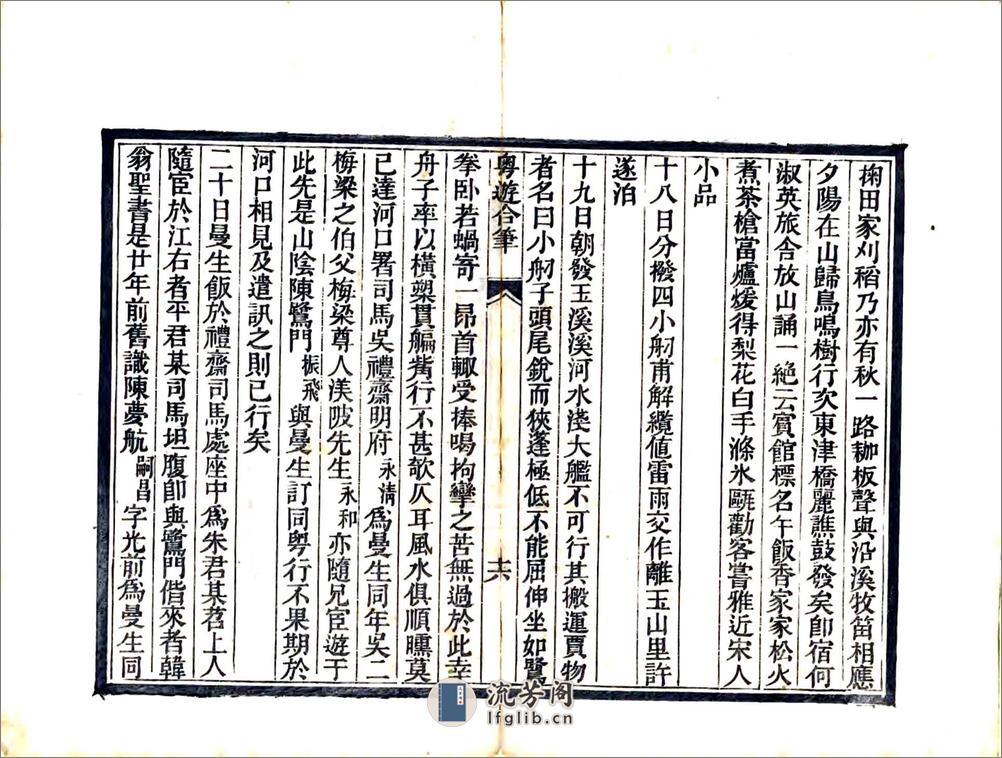 掬田家刈稻乃亦有秋一路耞板聲與沿溪牧笛相應
夕陽在山歸鳥鳴樹行次東津橋麗譙鼓發矣卽宿何
淑英旅舍放山誦一絶云賓館標名午飯香家家松火
煮茶槍當爐煖得梨花白手滌氷甌勸客嘗雅近宋人
小品
十八日分撥四小舠甫解纜値雷雨交作離玉山里許
遂泊
十九日朝發玉溪溪河水淺大艦不可行其搬運賈物
者名曰小舠子頭尾銳而狹蓬極低不能屈伸坐如鷺
粵遊合筆
十六
拳卧若蝸寄一昂首輙受捧喝拘攣之苦無過於此幸
舟子率以橫槊貫艑觜行不甚欹仄耳風水俱順曛莫
已達河口署司馬吳禮齋明府永淸爲曼生同年吳二
梅梁之伯父梅梁尊人渼陂先生永和亦隨兄宦遊于
此先是山陰陳鷺門振飛與曼生訂同粵行不果期於
河口相見及遣訊之則已行矣
二十日曼生飯於禮齋司馬處座中爲朱君某苕上人
隨宦於江右者平君某司馬坦腹卽與鷺門偕來者韓
翁聖書是廿年前舊識陳夢航嗣昌字光前爲曼生同
流芳阁
lfglib.cn